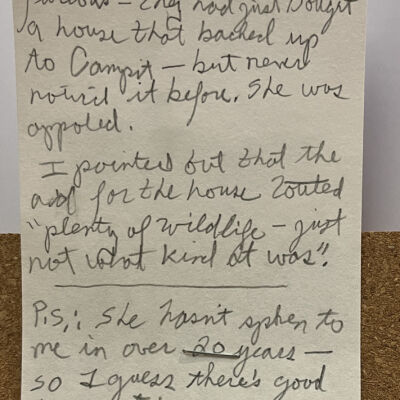 – they had just bought
a house that backed up
to Campit – but never
notic'd it before. She was
appoled.
I pointed out that the
ad for the house touted
"plenty of wildlife – just
not what kind it was".
P.S.: She hasn't spken to
me in over 20 years –
so I guess there's good